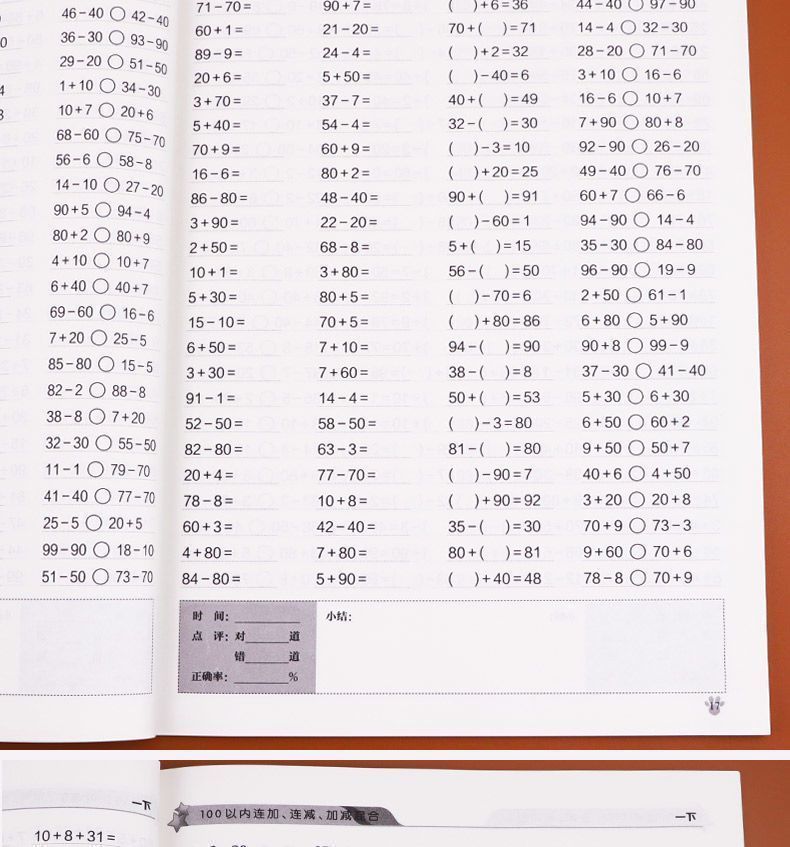 46－40 ○ 42－40
36－30 ○ 93－90
29－20 ○ 51－50
1＋10 ○ 34－30
10＋7 ○ 20＋6
68－60 ○ 75－70
56－6 ○ 58－8
14－10 ○ 27－20
90＋5 ○ 94－4
80＋2 ○ 80＋9
4＋10 ○ 10＋7
6＋40 ○ 40＋7
69－60 ○ 16－6
7＋20 ○ 25－5
85－80 ○ 15－5
82－2 ○ 88－8
38－8 ○ 7＋20
32－30 ○ 55－50
11－1 ○ 79－70
41－40 ○ 77－70
25－5 ○ 20＋5
99－90 ○ 18－10
51－50 ○ 73－70
71－70＝ 90＋7＝ (　)＋6＝36 44－40 ○ 97－90
60＋1＝ 21－20＝ 70＋(　)＝71 14－4 ○ 32－30
89－9＝ 24－4＝ (　)＋2＝32 28－20 ○ 71－70
20＋6＝ 5＋50＝ (　)－40＝6 3＋10 ○ 16－6
3＋70＝ 37－7＝ 40＋(　)＝49 16－6 ○ 10＋7
5＋40＝ 54－4＝ 32－(　)＝30 7＋90 ○ 80＋8
70＋9＝ 60＋9＝ (　)－3＝10 92－90 ○ 26－20
16－6＝ 80＋2＝ (　)＋20＝25 49－40 ○ 76－70
86－80＝ 48－40＝ 90＋(　)＝91 60＋7 ○ 66－6
3＋90＝ 22－20＝ (　)－60＝1 94－90 ○ 14－4
2＋50＝ 68－8＝ 5＋(　)＝15 35－30 ○ 84－80
10＋1＝ 3＋80＝ 56－(　)＝50 96－90 ○ 19－9
5＋30＝ 80＋5＝ (　)－70＝6 2＋50 ○ 61－1
15－10＝ 70＋5＝ (　)＋80＝86 6＋80 ○ 5＋90
6＋50＝ 7＋10＝ 94－(　)＝90 90＋8 ○ 99－9
3＋30＝ 7＋60＝ 38－(　)＝8 37－30 ○ 41－40
91－1＝ 14－4＝ 50＋(　)＝53 5＋30 ○ 6＋30
52－50＝ 58－50＝ (　)－3＝80 6＋50 ○ 60＋2
82－80＝ 63－3＝ 81－(　)＝80 9＋50 ○ 50＋7
20＋4＝ 77－70＝ (　)－90＝7 40＋6 ○ 4＋50
78－8＝ 10＋8＝ (　)＋90＝92 3＋20 ○ 20＋8
60＋3＝ 42－40＝ 35－(　)＝30 70＋9 ○ 73－3
4＋80＝ 7＋80＝ 80＋(　)＝81 9＋60 ○ 70＋6
84－80＝ 5＋90＝ (　)＋40＝48 78－8 ○ 70＋9
时　间：________ 小结：
点　评：对______道
错______道
正确率：________%
17
一下
10＋8＋31＝
100以内连加、连减、加减混合 一下